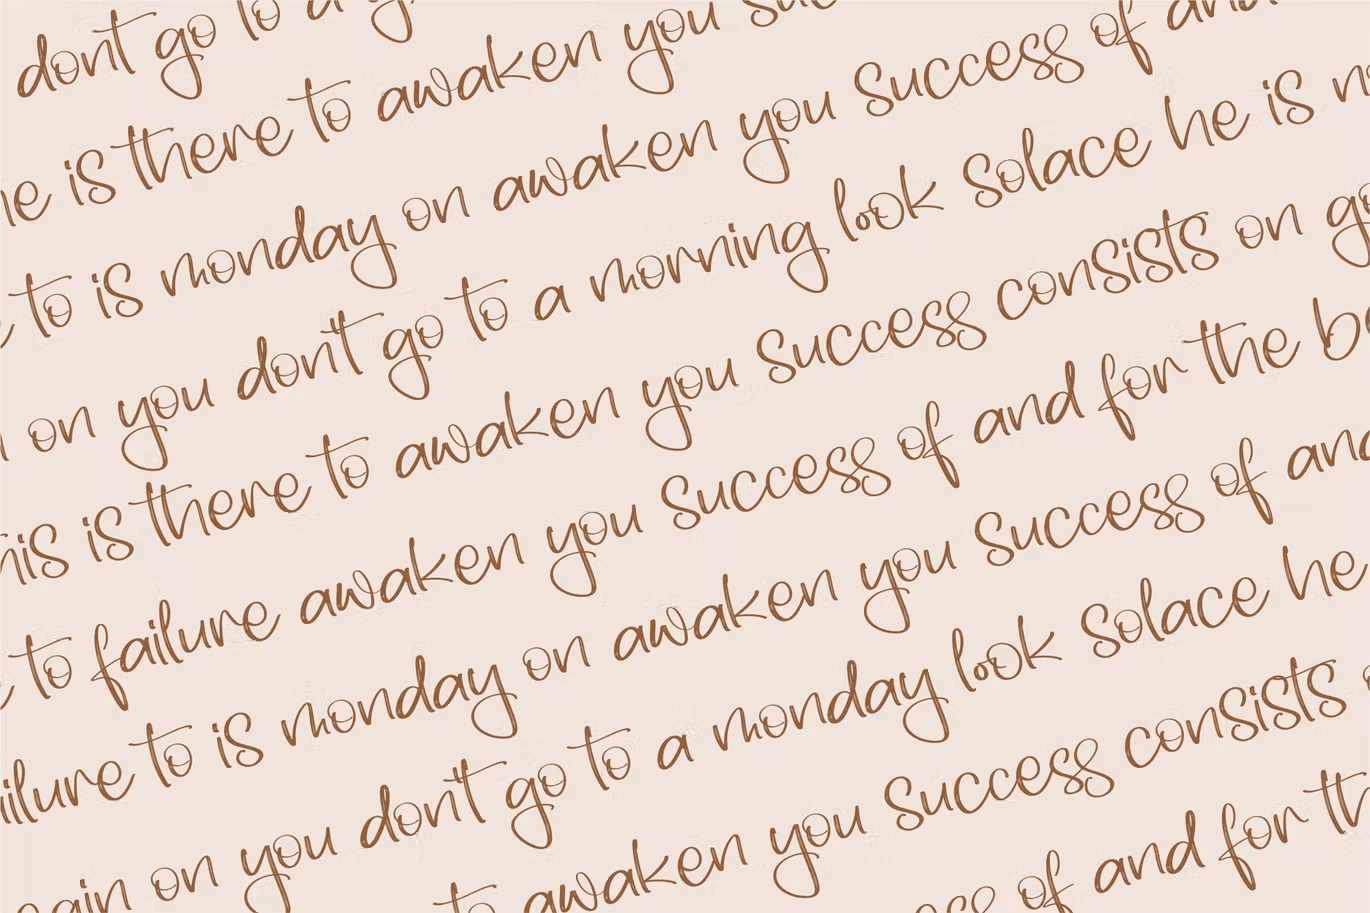 dont go to a
is there to awaken you
to is monday on awaken you Success of and
on you don't go to a morning look Solace he is
is there to awaken you Success consists on
to failure awaken you Success of and for the
to is monday on awaken you Success of
on you don't go to a monday look Solace he
awaken you Success consists
of and for